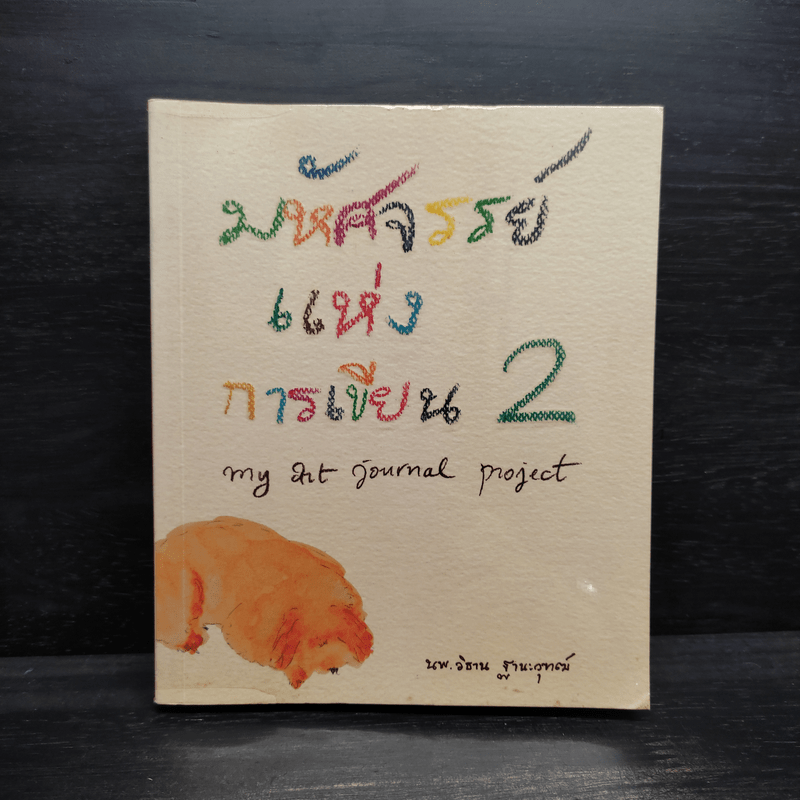 มหัศจรรย์
แห่ง
การเขียน 2
my art journal project
นพ.วิธาน ฐานะวุฑฒ์